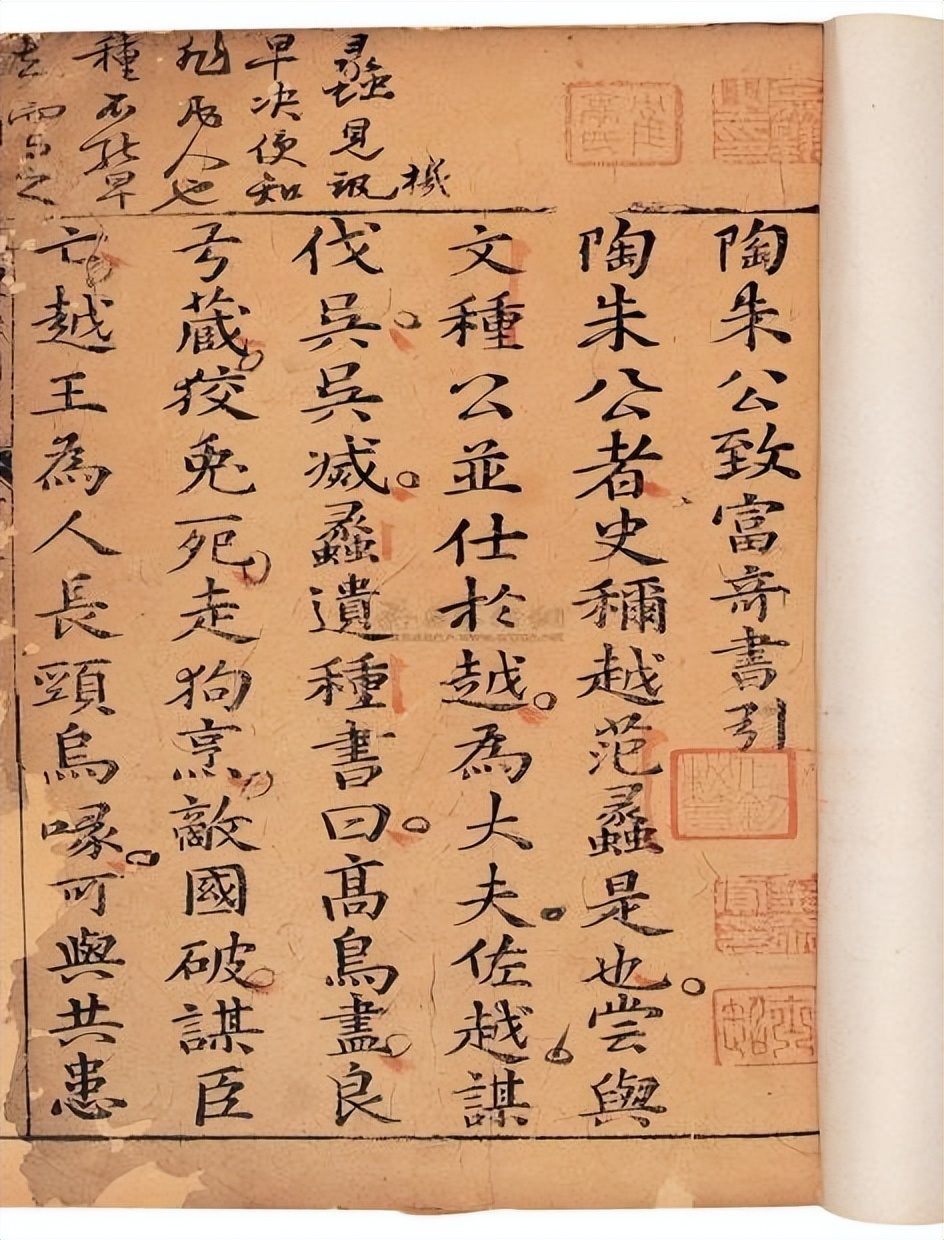 陶朱公致富奇書引
陶朱公者史稱越范蠡是也。嘗與
文種公並仕於越。為大夫。佐越。謀
伐吳。吳滅。蠡遺種書曰。高鳥盡。良
弓藏。狡兔死。走狗烹。敵國破。謀臣
亡越王為人長頸烏喙。可與共患
蠡見識機
早决便知
為人也
種不能早